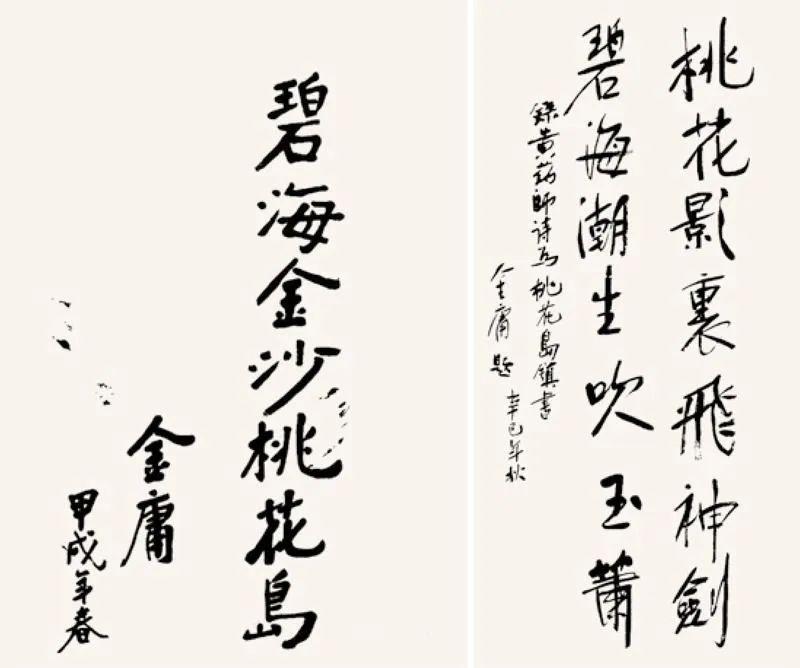 碧海金沙桃花島
金庸
甲戌年春
桃花影裏飛神劍
碧海潮生吹玉蕭
錄黃药師诗为桃花島鎮書
金庸題 辛巳年秋